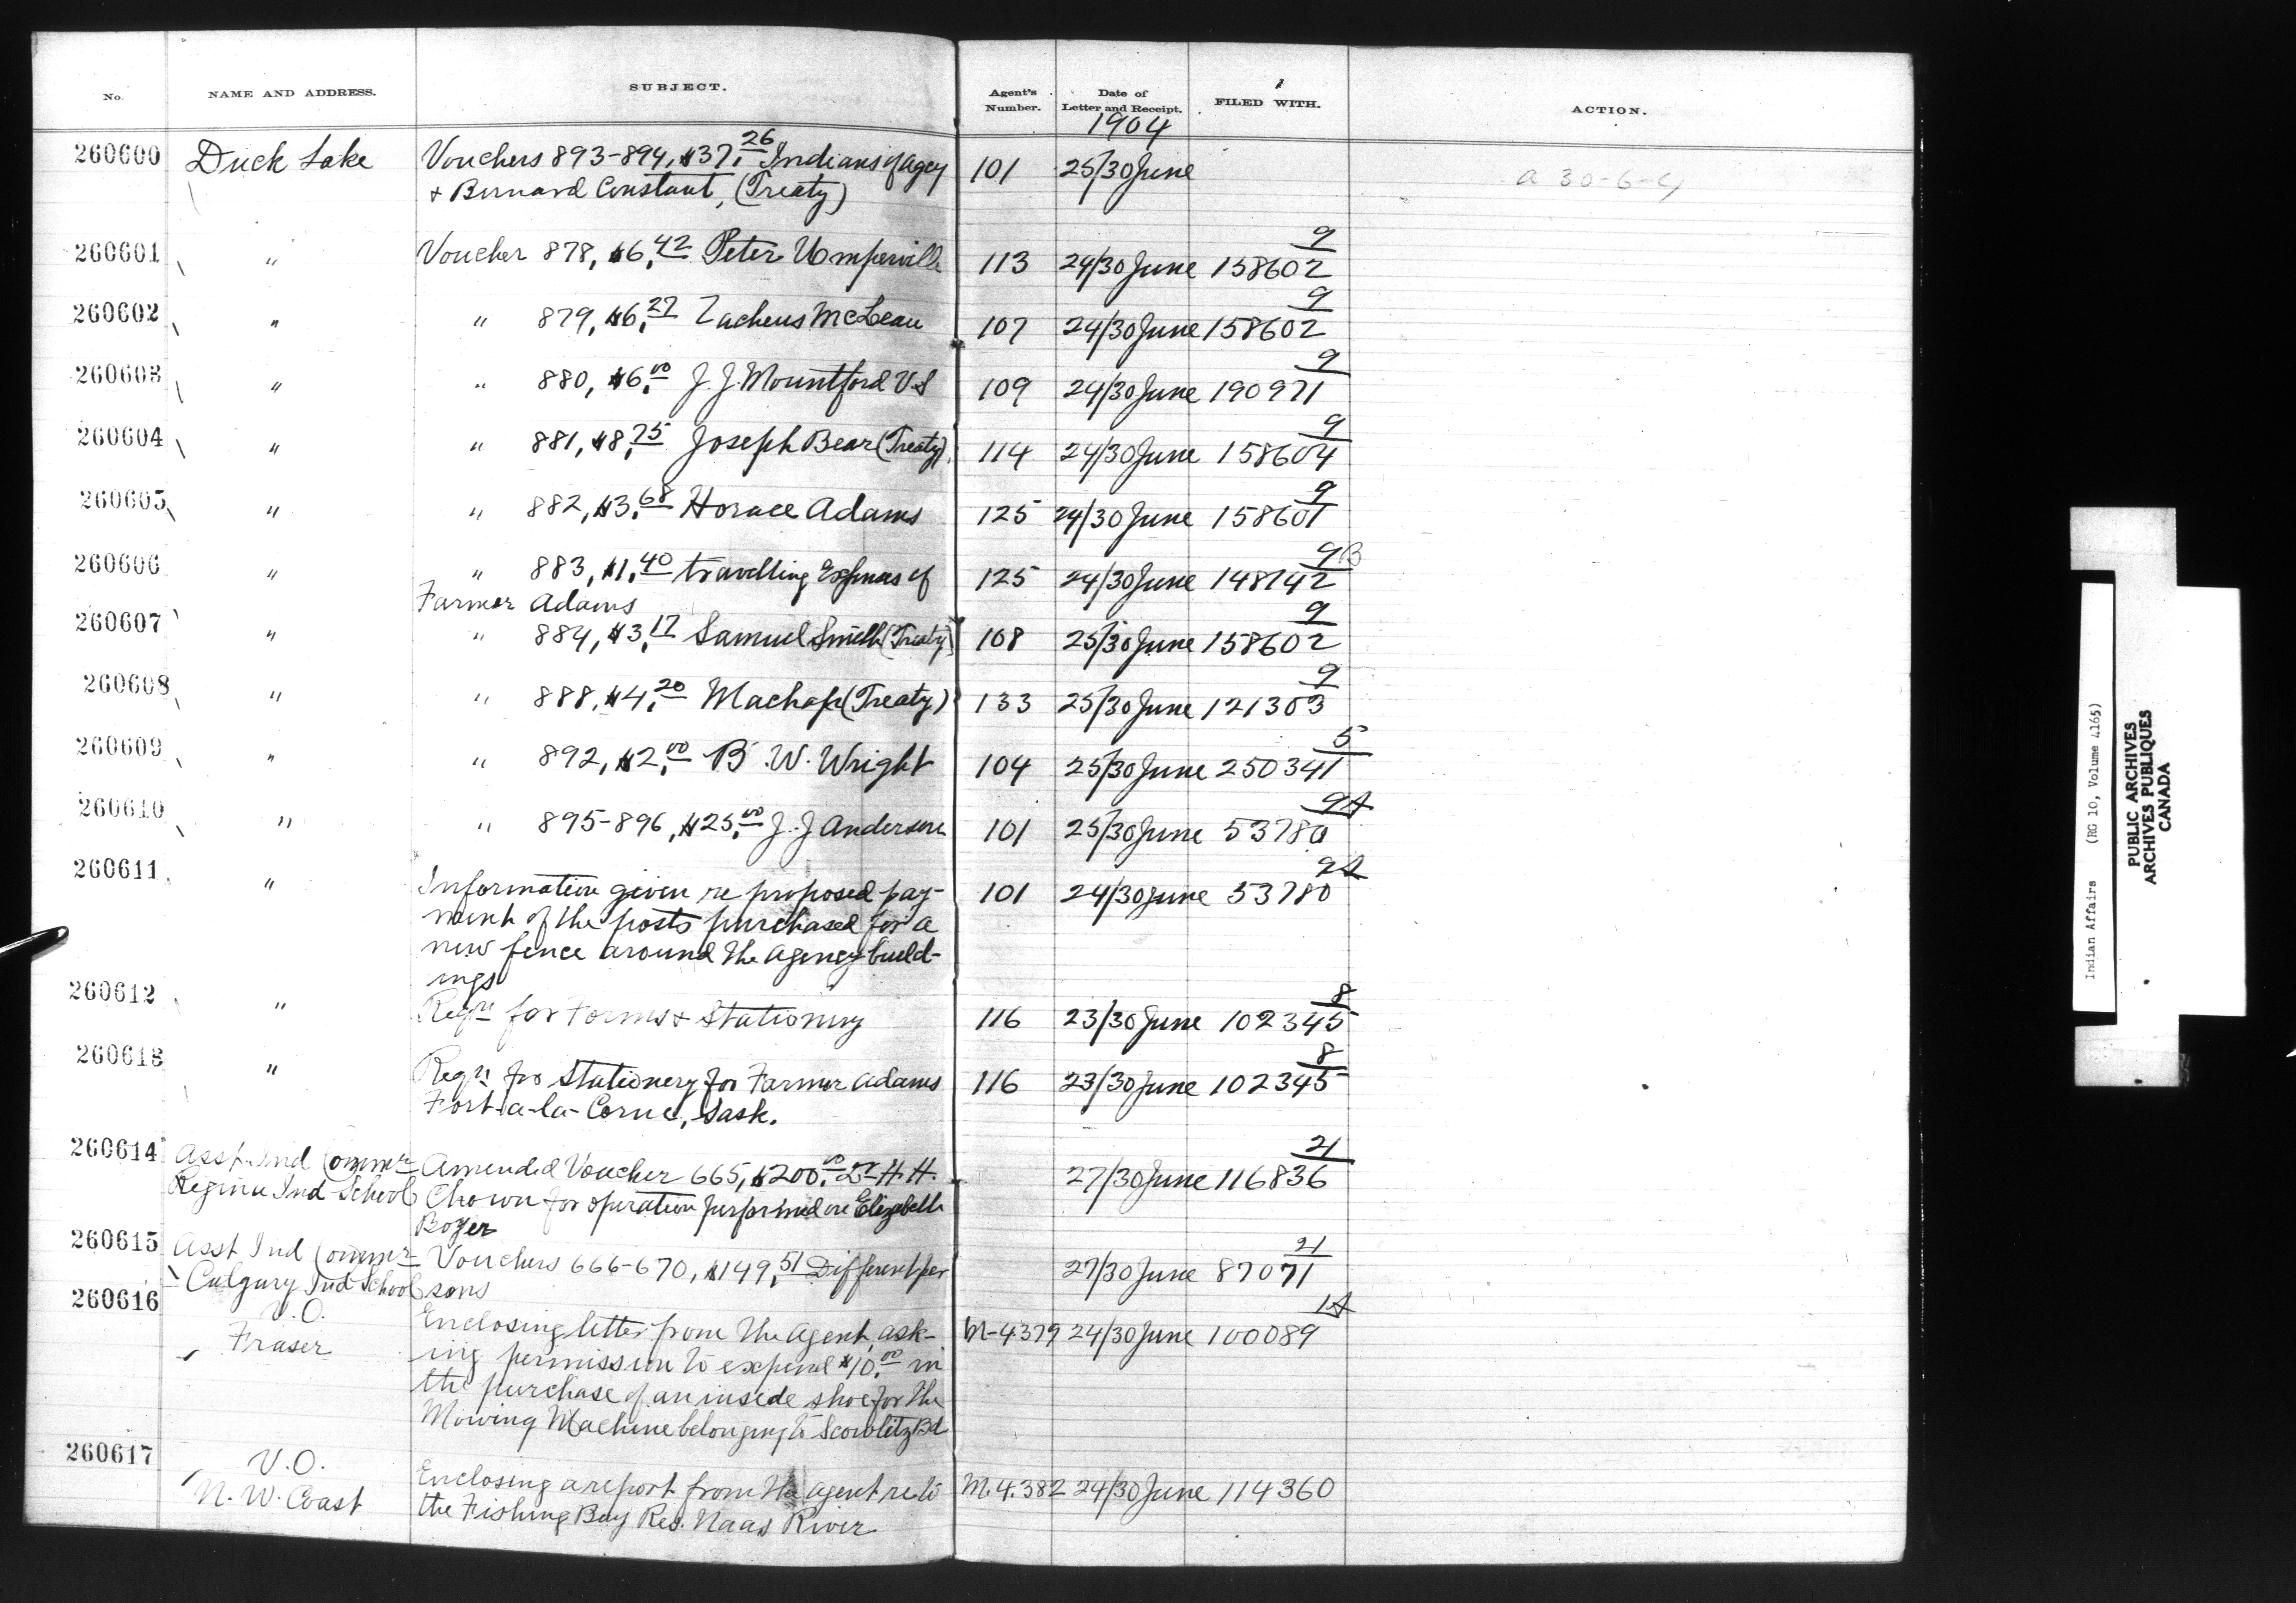 No. NAME AND ADDRESS. SUBJECT. Agent's Number. Date of Letter and Receipt. FILED WITH. ACTION.
1904
260600 Duck Lake Vouchers 893-894, $37.26 Indians of Agcy 101 25/30 June a 30-6-4
& Bernard Constant, (Treaty)
9
260601 " Voucher 878, $6.42 Peter Umperville 113 24/30 June 158602
9
260602 " " 879, $6.27 Zacheus McLean 107 24/30 June 158602
9
260603 " " 880, $6.00 J. J. Mountford V.S 109 24/30 June 190971
9
260604 " " 881, $8.75 Joseph Bear (Treaty) 114 24/30 June 158604
9
260605 " " 882, $3.68 Horace Adams 125 24/30 June 158601
9B
260606 " " 883, $1.40 travelling Expenses of 125 24/30 June 148142
Farmer Adams
9
260607 " " 884, $3.17 Samuel Smith (Treaty) 108 25/30 June 158602
9
260608 " " 888, $4.20 (Treaty) 133 25/30 June 121303
5
260609 " " 892, $2.00 B. W. Wright 104 25/30 June 250341
9A
260610 " " 895-896, $25.00 J. J Anderson 101 25/30 June 53780
9A
260611 " Information given re proposed pay- 101 24/30 June 53780
ment of the posts purchased for a
new fence around the Agency build-
ings
8
260612 " Reqn for Forms & Stationery 116 23/30 June 102345
8
260613 " Reqn for Stationery for Farmer Adams 116 23/30 June 102345
Fort-a-la-Corne, Sask.
21
260614 Asst. Ind Commr Amended Voucher 665, $200.00 Dr H. H. 27/30 June 116836
Regina Ind School Chown for operation performed on Elizabeth
Boyer
21
260615 Asst Ind Commr Vouchers 666-670, $149.51 Different per 27/30 June 87071
Calgary Ind School sons
1A
260616 V.O. Enclosing letter from the Agent, ask- M-4379 24/30 June 100089
Fraser ing permission to expend $10.00 in
the purchase of an inside shoe for the
Mowing Machine belonging to Scowlitz Bd
260617 V.O. Enclosing a report from the Agent re to M.4.382 24/30 June 114360
N. W. Coast the Fishing Bay Res. Naas River
Indian Affairs (RG 10, Volume 4165)
PUBLIC ARCHIVES
ARCHIVES PUBLIQUES
CANADA